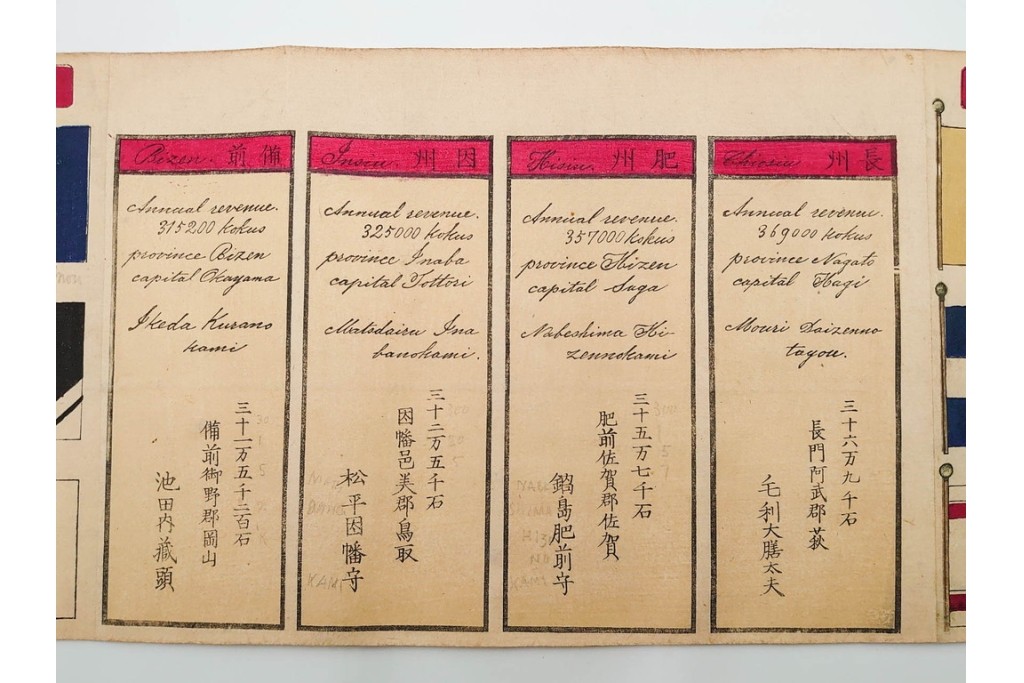 Bizen.
備前
Annual revenue.
315200 kokus
province Bizen
capital Okayama
Ikeda Kurano
kami
三十一万五千二百石
備前御野郡岡山
池田内藏頭
Insiu.
因州
Annual revenue.
325000 kokus
province Inaba
capital Tottori
Matsdaira Ina
banokami.
三十二万五千石
因幡邑美郡鳥取
松平因幡守
KAMI
Hisiu.
肥州
Annual revenue.
357000 kokus
province Hizen
capital Saga
Nabeshima Hi-
zennokami
三十五万七千石
肥前佐賀郡佐賀
鍋島肥前守
KAMI
Chiosiu
長州
Annual revenue.
369000 kokus
province Nagato
capital Hagi
Mouri Daizenno
tayou.
三十六万九千石
長門阿武郡萩
毛利大膳太夫